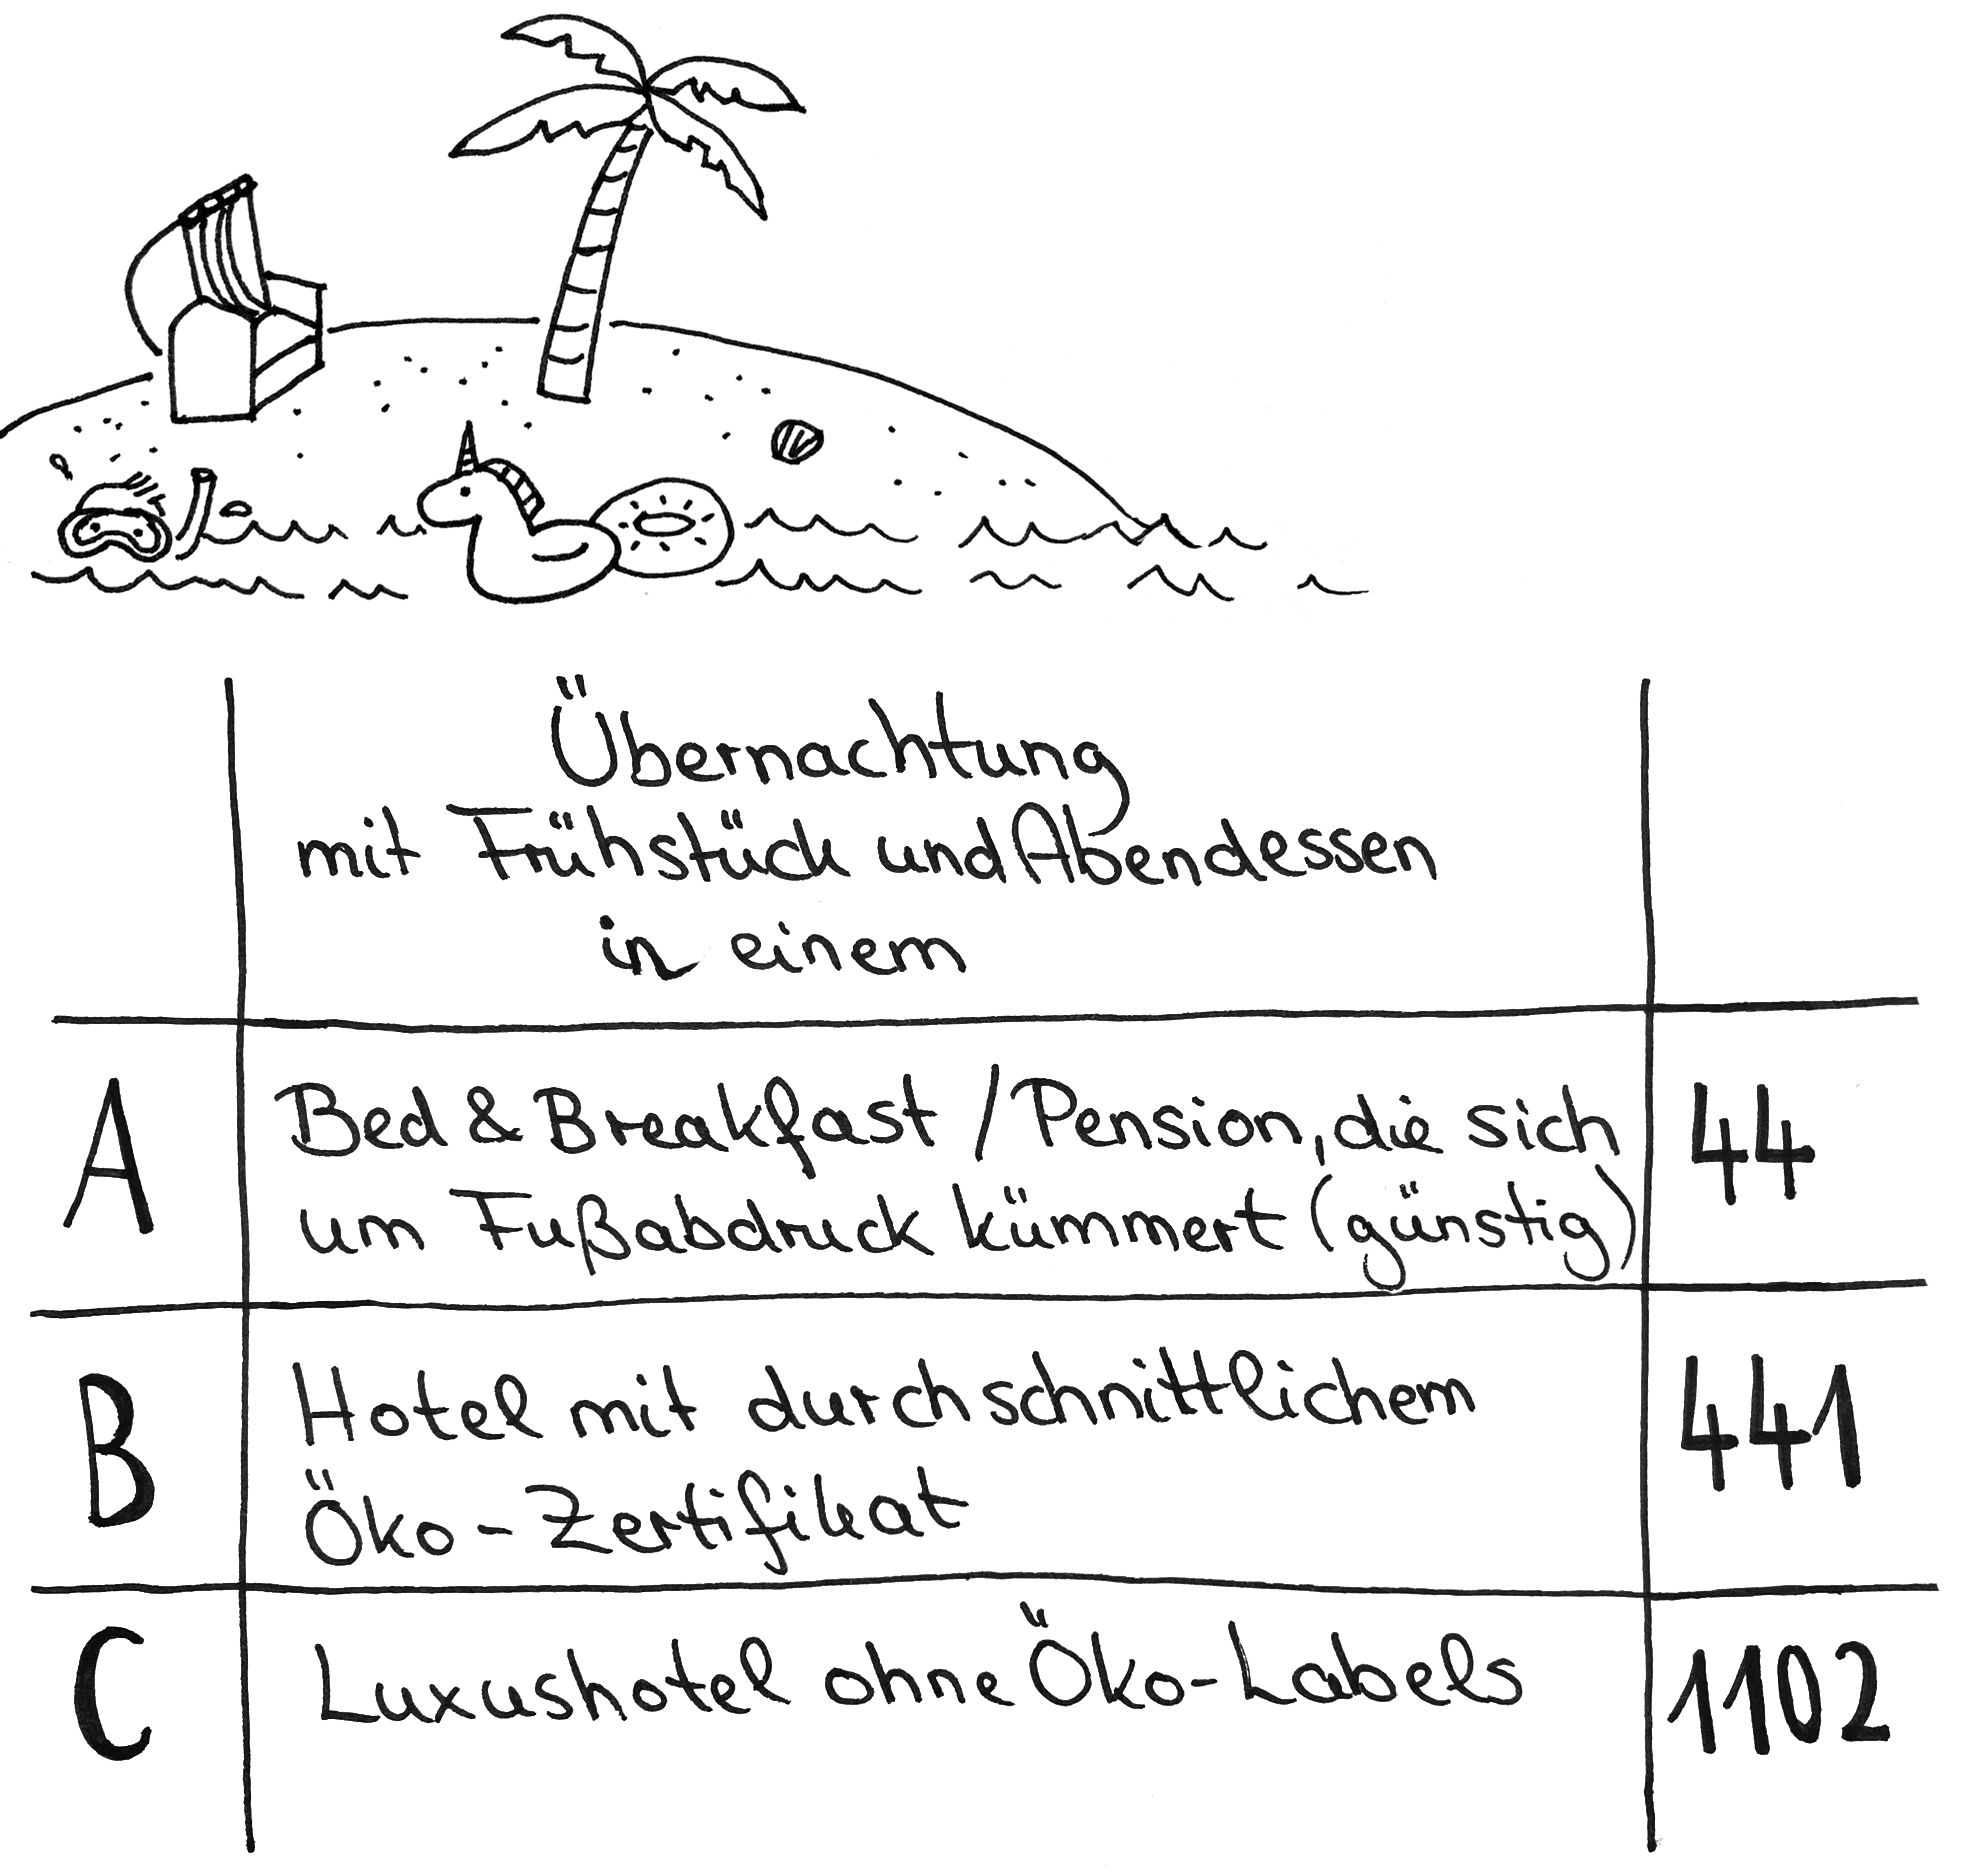 Übernachtung
mit Frühstück und Abendessen
in einem
A
Bed & Breakfast / Pension, die sich
um Fußabdruck kümmert (günstig)
44
B
Hotel mit durchschnittlichem
Öko-Zertifikat
441
C
Luxushotel ohne Öko-Labels
1102